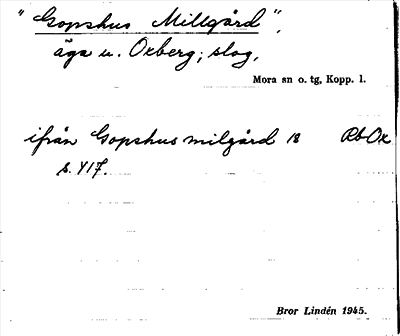 "Gopshus Millgård",
äga u. Oxberg; slog,
Mora sn o. tg, Kopp. l.
ifrån Gopshus milgård 18 Rb Ox
s. 417.
Bror Lindén 1945.